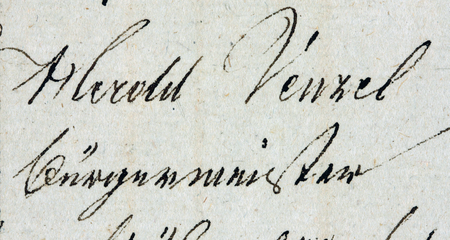 Herold Venzel
Bürgermeister